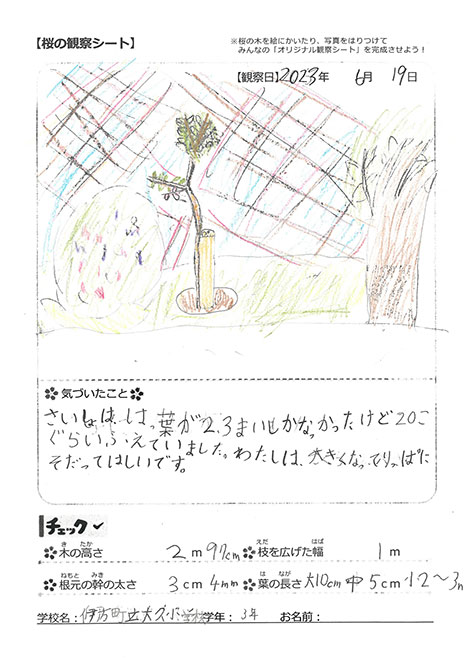 【桜の観察シート】
※桜の木を絵にかいたり、写真をはりつけて
みんなの「オリジナル観察シート」を完成させよう！
【観察日】2023年 6月 19日
気づいたこと
さいしょは、はっ葉が2.3まいしかなかったけど20こ
ぐらいふえていました。わたしは、大きくなってりっぱに
そだってほしいです。
チェック
木の高さ 2m97cm 枝を広げた幅 1m
根元の幹の太さ 3cm4mm 葉の長さ 大10cm 中5cm
学校名： 学年：3年 お名前：